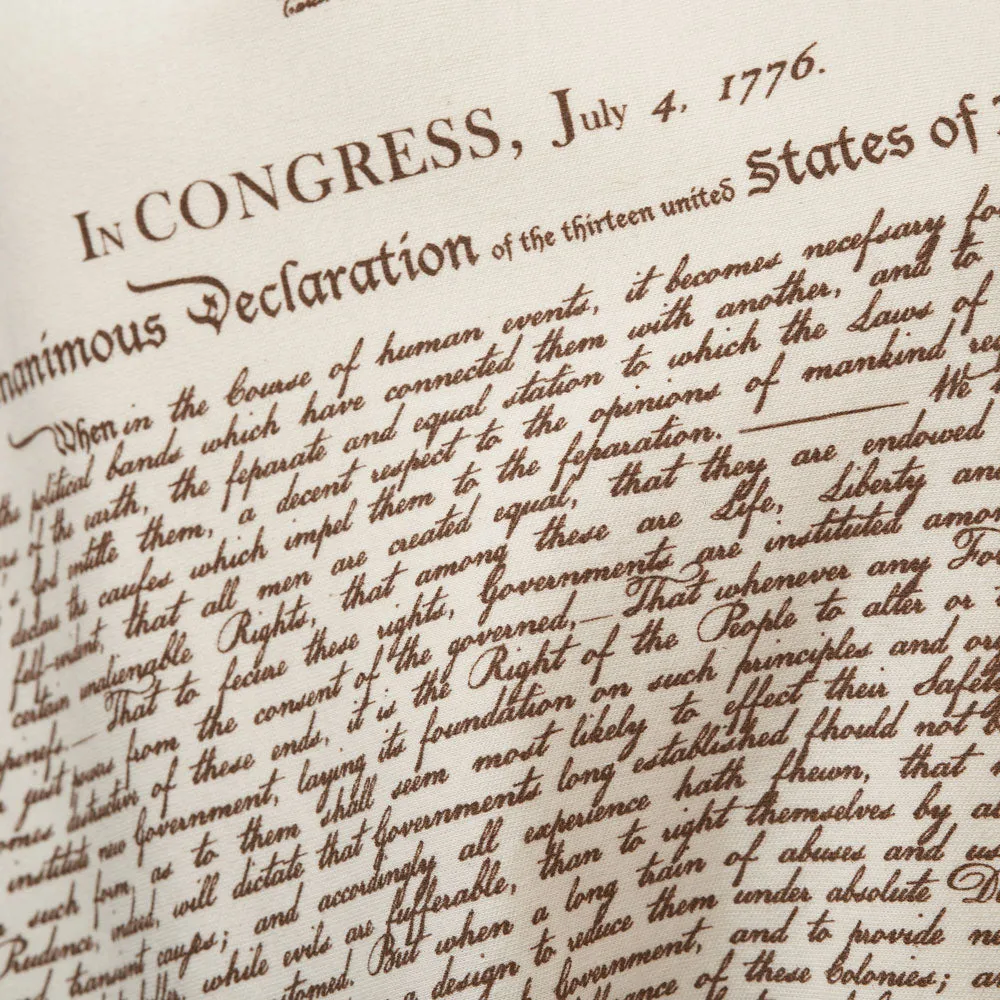 IN CONGRESS, July 4, 1776.
nanimous Declaration of the thirteen united States of
When in the Course of human events, it becomes necefsary fo
the political bands which have connected them with another, and to
of the earth, the feparate and equal station to which the Laws of
God entitle them, a decent respect to the opinions of mankind re
declare the caufes which impel them to the feparation. —— We
felf-evident, that all men are created equal, that they are endowed
certain unalienable Rights, that among these are Life, Liberty an
—That to fecure these rights, Governments are instituted amo
just powers from the consent of the governed,—That whenever any Fo
destructive of these ends, it is the Right of the People to alter or
institute new Government, laying its foundation on such principles and or
such form, as to them shall seem most likely to effect their Safet
Prudence, indeed, will dictate that Governments long established fhould not
transient caufes; and accordingly all experience hath fhewn, that
while evils are fufferable, than to right themselves by
But when a long train of abuses and us
a design to reduce them under absolute D
Government, and to provide
of these Colonies;